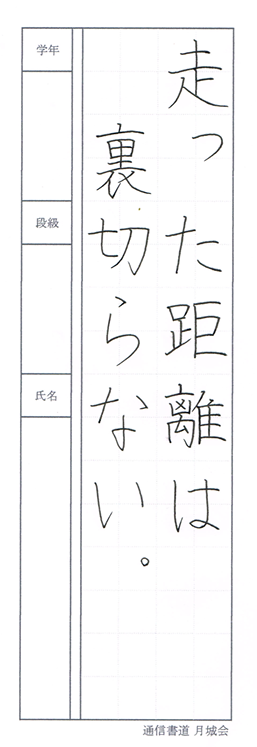 走った距離は
裏切らない。
学年
段級
氏名
通信書道 月城会